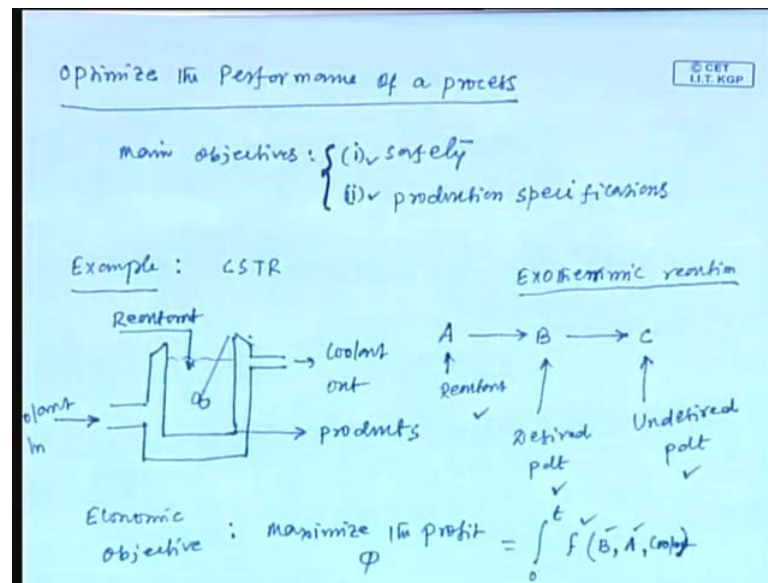 Optimize the Performance of a process
© CET
I.I.T. KGP
main objectives : (i) safety
(ii) production specifications
Example : CSTR
Exothermic reaction
Reactant
A → B → C
Coolant
out
olant
In
products
Reactant
Desired
pdt
Undesired
pdt
Economic
objective : Maximize the profit = ∫ f (B, A, Coolant
φ
t
0